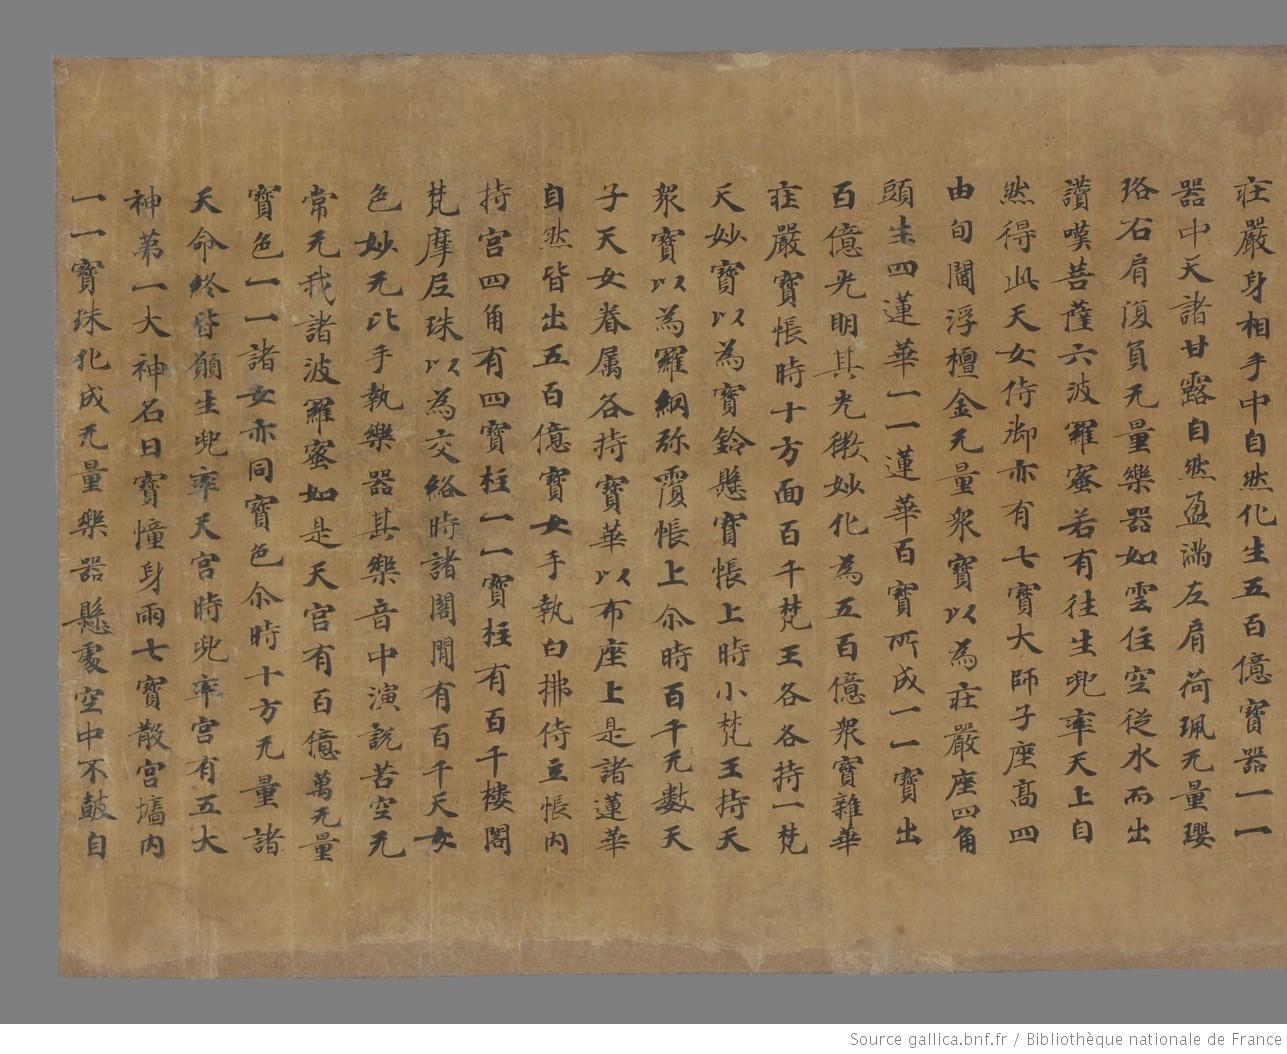 荘嚴身相手中自然化生五百億寳器一一
器中天諸甘露自然盈滿左肩荷珮无量瓔
珞右肩復負无量樂器如雲住空從水而出
讃嘆菩薩六波羅蜜若有往生兜率天上自
然得此天女侍御亦有七寳大師子座髙四
由旬閻浮檀金无量衆寳以為荘嚴座四角
頭生四蓮華一一蓮華百寳所成一一寳出
百億光明其光微妙化為五百億衆寳雜華
荘嚴寳帳時十方面百千梵王各各持一梵
天妙寳以為寳鈴懸寳帳上時小梵王持天
衆寳以為羅網弥覆帳上尒時百千无數天
子天女眷属各持寳華以布座上是諸蓮華
自然皆出五百億寳女手執白拂侍立帳内
持宮四角有四寳柱一一寳柱有百千樓閣
梵摩尼珠以為交絡時諸閣閒有百千天女
色妙无比手執樂器其樂音中演說苦空无
常无我諸波羅蜜如是天宮有百億萬无量
寳色一一諸女亦同寳色尒時十方无量諸
天命終皆願生兜率天宮時兜率宮有五大
神苐一大神名曰寳憧身雨七寳散宮墻内
一一寳珠化成无量樂器懸處空中不鼓自
Source gallica.bnf.fr / Bibliothèque nationale de France